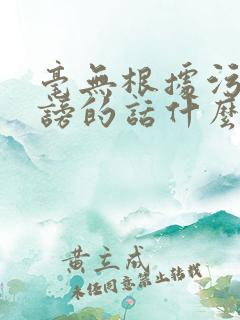 毫無根據污
謗的話什麼
黃立成
未經同意禁止轉載